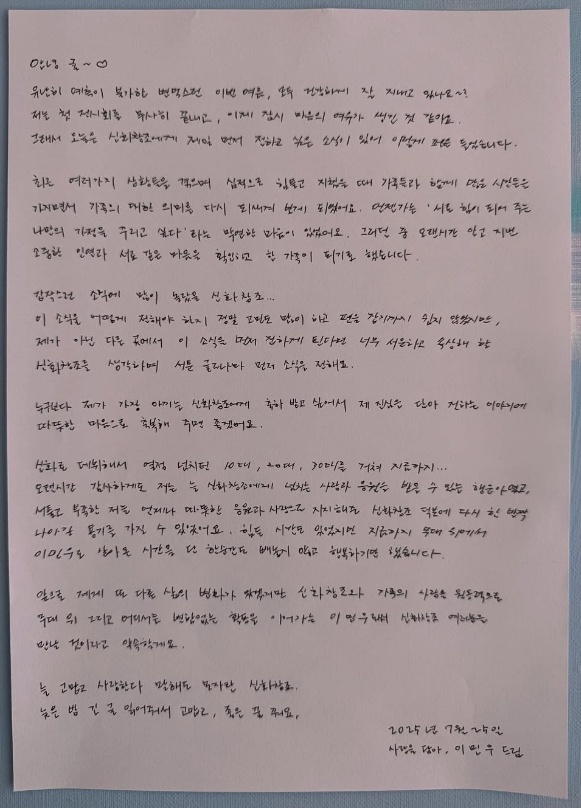 안녕 귤~♡
유난히 예측이 불가한 변덕스런 이번 여름, 모두 건강하게 잘 지내고 있나요~?
저는 첫 전시회를 무사히 끝내고, 이제 잠시 마음의 여유가 생긴 것 같아요.
그래서 오늘은 신화창조에게 제일 먼저 전하고 싶은 소식이 있어 이렇게 펜을 들었습니다.
최근 여러가지 상황들을 겪으며 심적으로 힘들고 지쳤을 때 가족들과 함께 많은 시간들은
가지면서 가족의 대한 의미를 다시 되새기게 되었어요. 언젠가는 '서로 힘이 되어 주는
나만의 가정을 꾸리고 싶다'라는 막연한 마음이 있었어요. 그러던 중 오랜시간 알고 지낸
소중한 인연과 서로 같은 마음을 확인하고 한 가족이 되기로 했습니다.
갑작스런 소식에 많이 놀랐을 신화창조...
이 소식을 어떻게 전해야 하지 정말 고민도 많이 하고 펜을 잡기까지 쉽지 않았지만,
제가 아닌 다른 곳에서 이 소식을 먼저 전하게 된다면 너무 서운하고 속상해 할
신화창조를 생각하며 서툰 글로나마 먼저 소식을 전해요.
누구보다 제가 가장 아끼는 신화창조에게 축하 받고 싶어서 제 진심을 담아 전하는 이야기에
따뜻한 마음으로 축복해 주면 좋겠어요.
신화로 데뷔해서 열정 넘치던 10대, 20대, 30대를 거쳐 지금까지...
오랜시간 감사하게도 저는 늘 신화창조에게 넘치는 사랑과 응원을 받을 수 있는 행운아였고,
서툴고 부족한 저를 언제나 따뜻한 응원과 사랑으로 지지해준 신화창조 덕분에 다시 한 발짝
나아갈 용기를 가질 수 있었어요. 힘든 시간도 있었지만 지금까지 무대 위에서
이민우로 살아온 시간을 단 한순간도 빼놓지 않고 행복하기만 했습니다.
앞으로 제게 또 다른 삶의 변화가 있겠지만 신화창조와 가족의 사랑을 원동력으로
무대 위 그리고 어디서든 변함없는 활동을 이어가는 이민우로써 신화창조 여러분을
만날 것이라고 약속할게요.
늘 고맙고 사랑한다 말해도 모자란 신화창조.
늦은 밤 긴 글 읽어줘서 고맙고, 좋은 꿈 꿔요.
2025년 7월 25일
사랑을 담아, 이민우 드림